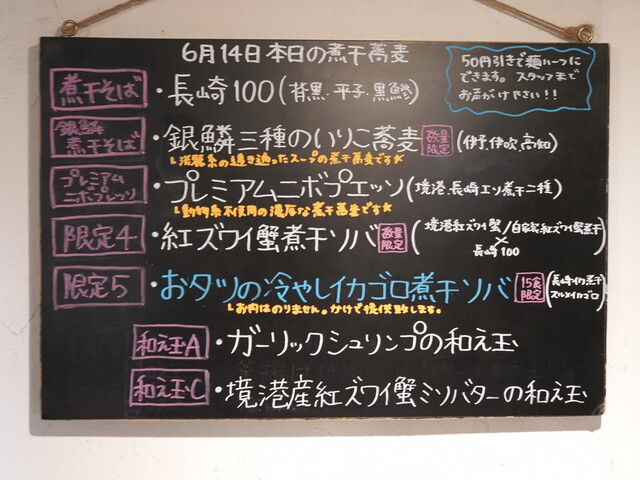 6月14日 本日の煮干蕎麦
50円引きで麺ハーフに
できます。スタッフまで
お声がけ下さい!!
煮干そば ・長崎100(背黒・平子・黒鱗)
銀鱗
煮干そば ・銀鱗三種のいりこ蕎麦 数量
限定 (伊予、伊吹、高知)
淡麗系の透き通ったスープの煮干蕎麦です★
プレミアム
ニボプレッソ ・プレミアムニボプエッソ(境港、長崎エソ煮干二種)
動物系不使用の濃厚な煮干蕎麦です★
限定4 ・紅ズワイ蟹煮干ソバ 数量
限定 (境港紅ズワイ蟹/自家製紅ズワイ蟹煮干
×
長崎100)
限定5 ・おタツの冷やしイカゴロ煮干ソバ 15食
限定 (長崎イカ煮干
スルメイカゴロ)
お肉はのりません。かけで提供致します。
和え玉A ・ガーリックシュリンプの和え玉
和え玉C ・境港産紅ズワイ蟹ミソバターの和え玉